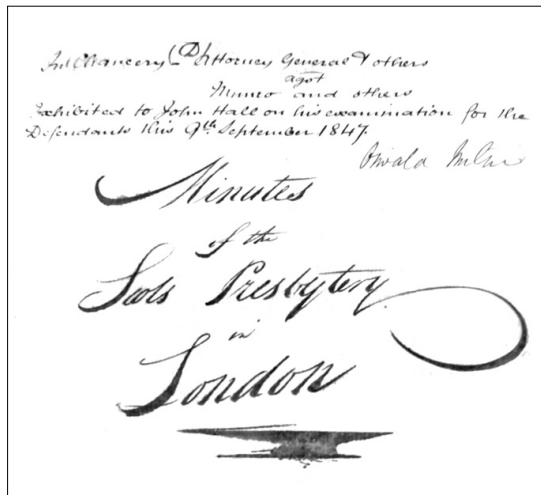 In Chancery (D) Attorney General & others
agst
Munro and others
Exhibited to John Hall on his examination for the
Defendants this 9th September 1847.
Oswald
Minutes
of the
Scots Presbytery
in
London